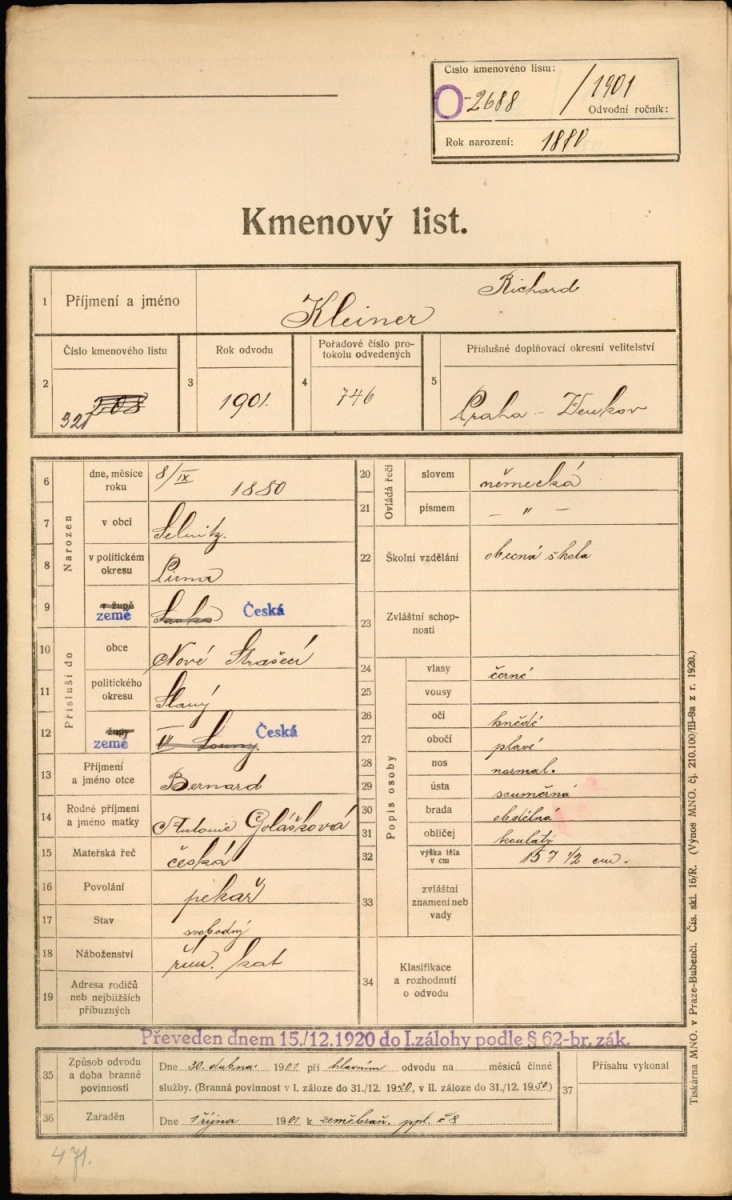 Číslo kmenového listu:
O-2688 / 1901
Odvodní ročník:
Rok narození: 1880
Kmenový list.
1 Příjmení a jméno Kleiner Richard
2 Číslo kmenového listu 208 321
3 Rok odvodu 1901.
4 Pořadové číslo protokolu odvedených 746
5 Příslušné doplňovací okresní velitelství Praha - Venkov
Narozen
6 dne, měsíce roku 8/IX 1880
7 v obci Selnitz.
8 v politickém okresu Pirna
9 v župě země Sasko Česká
Přísluší do
10 obce Nové Strašecí
11 politického okresu Slaný
12 župy země IV Louny. Česká
13 Příjmení a jméno otce Bernard
14 Rodné příjmení a jméno matky Antonie Golášková
15 Mateřská řeč česká
16 Povolání pekař
17 Stav svobodný
18 Náboženství řím. kat
19 Adresa rodičů neb nejbližších příbuzných
Ovládá řeči
20 slovem německá
21 písmem — " —
22 Školní vzdělání obecná škola
23 Zvláštní schopnosti
Popis osoby
24 vlasy černé
25 vousy
26 oči hnědé
27 obočí plavé
28 nos normal.
29 ústa souměrná
30 brada obdélná
31 obličej koulatý
32 výška těla v cm 157 1/2 cm.
33 zvláštní znamení neb vady
34 Klasifikace a rozhodnutí o odvodu
Převeden dnem 15./12.1920 do I.zálohy podle § 62-br. zák.
35 Způsob odvodu a doba branné povinnosti
Dne 30. dubna 1901 při hlavním odvodu na měsíců činné
služby. (Branná povinnost v I. záloze do 31./12. 1920, v II. záloze do 31./12. 1930)
36 Zařaděn Dne 1 října 1901 k zeměbraň. ppl. č 8
37 Přísahu vykonal
471.
Tiskárna MNO. v Praze-Bubenči. Čís. skl. 16/R. (Výnos MNO. čj. 210.100/III-9a z r. 1920.)